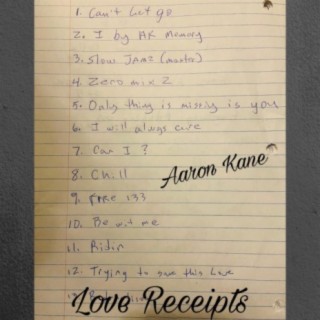 1. Can't Let go
2. I by AK Memory
3. Slow Jamz (master)
4. Zero mix 2
5. Only thing is missing is you
6. I will always care
7. Can I?
8. Chill
Aaron Kane
9. 133
10. Be wit me
11. Ridin
12. Trying to save this Love
Love Receipts